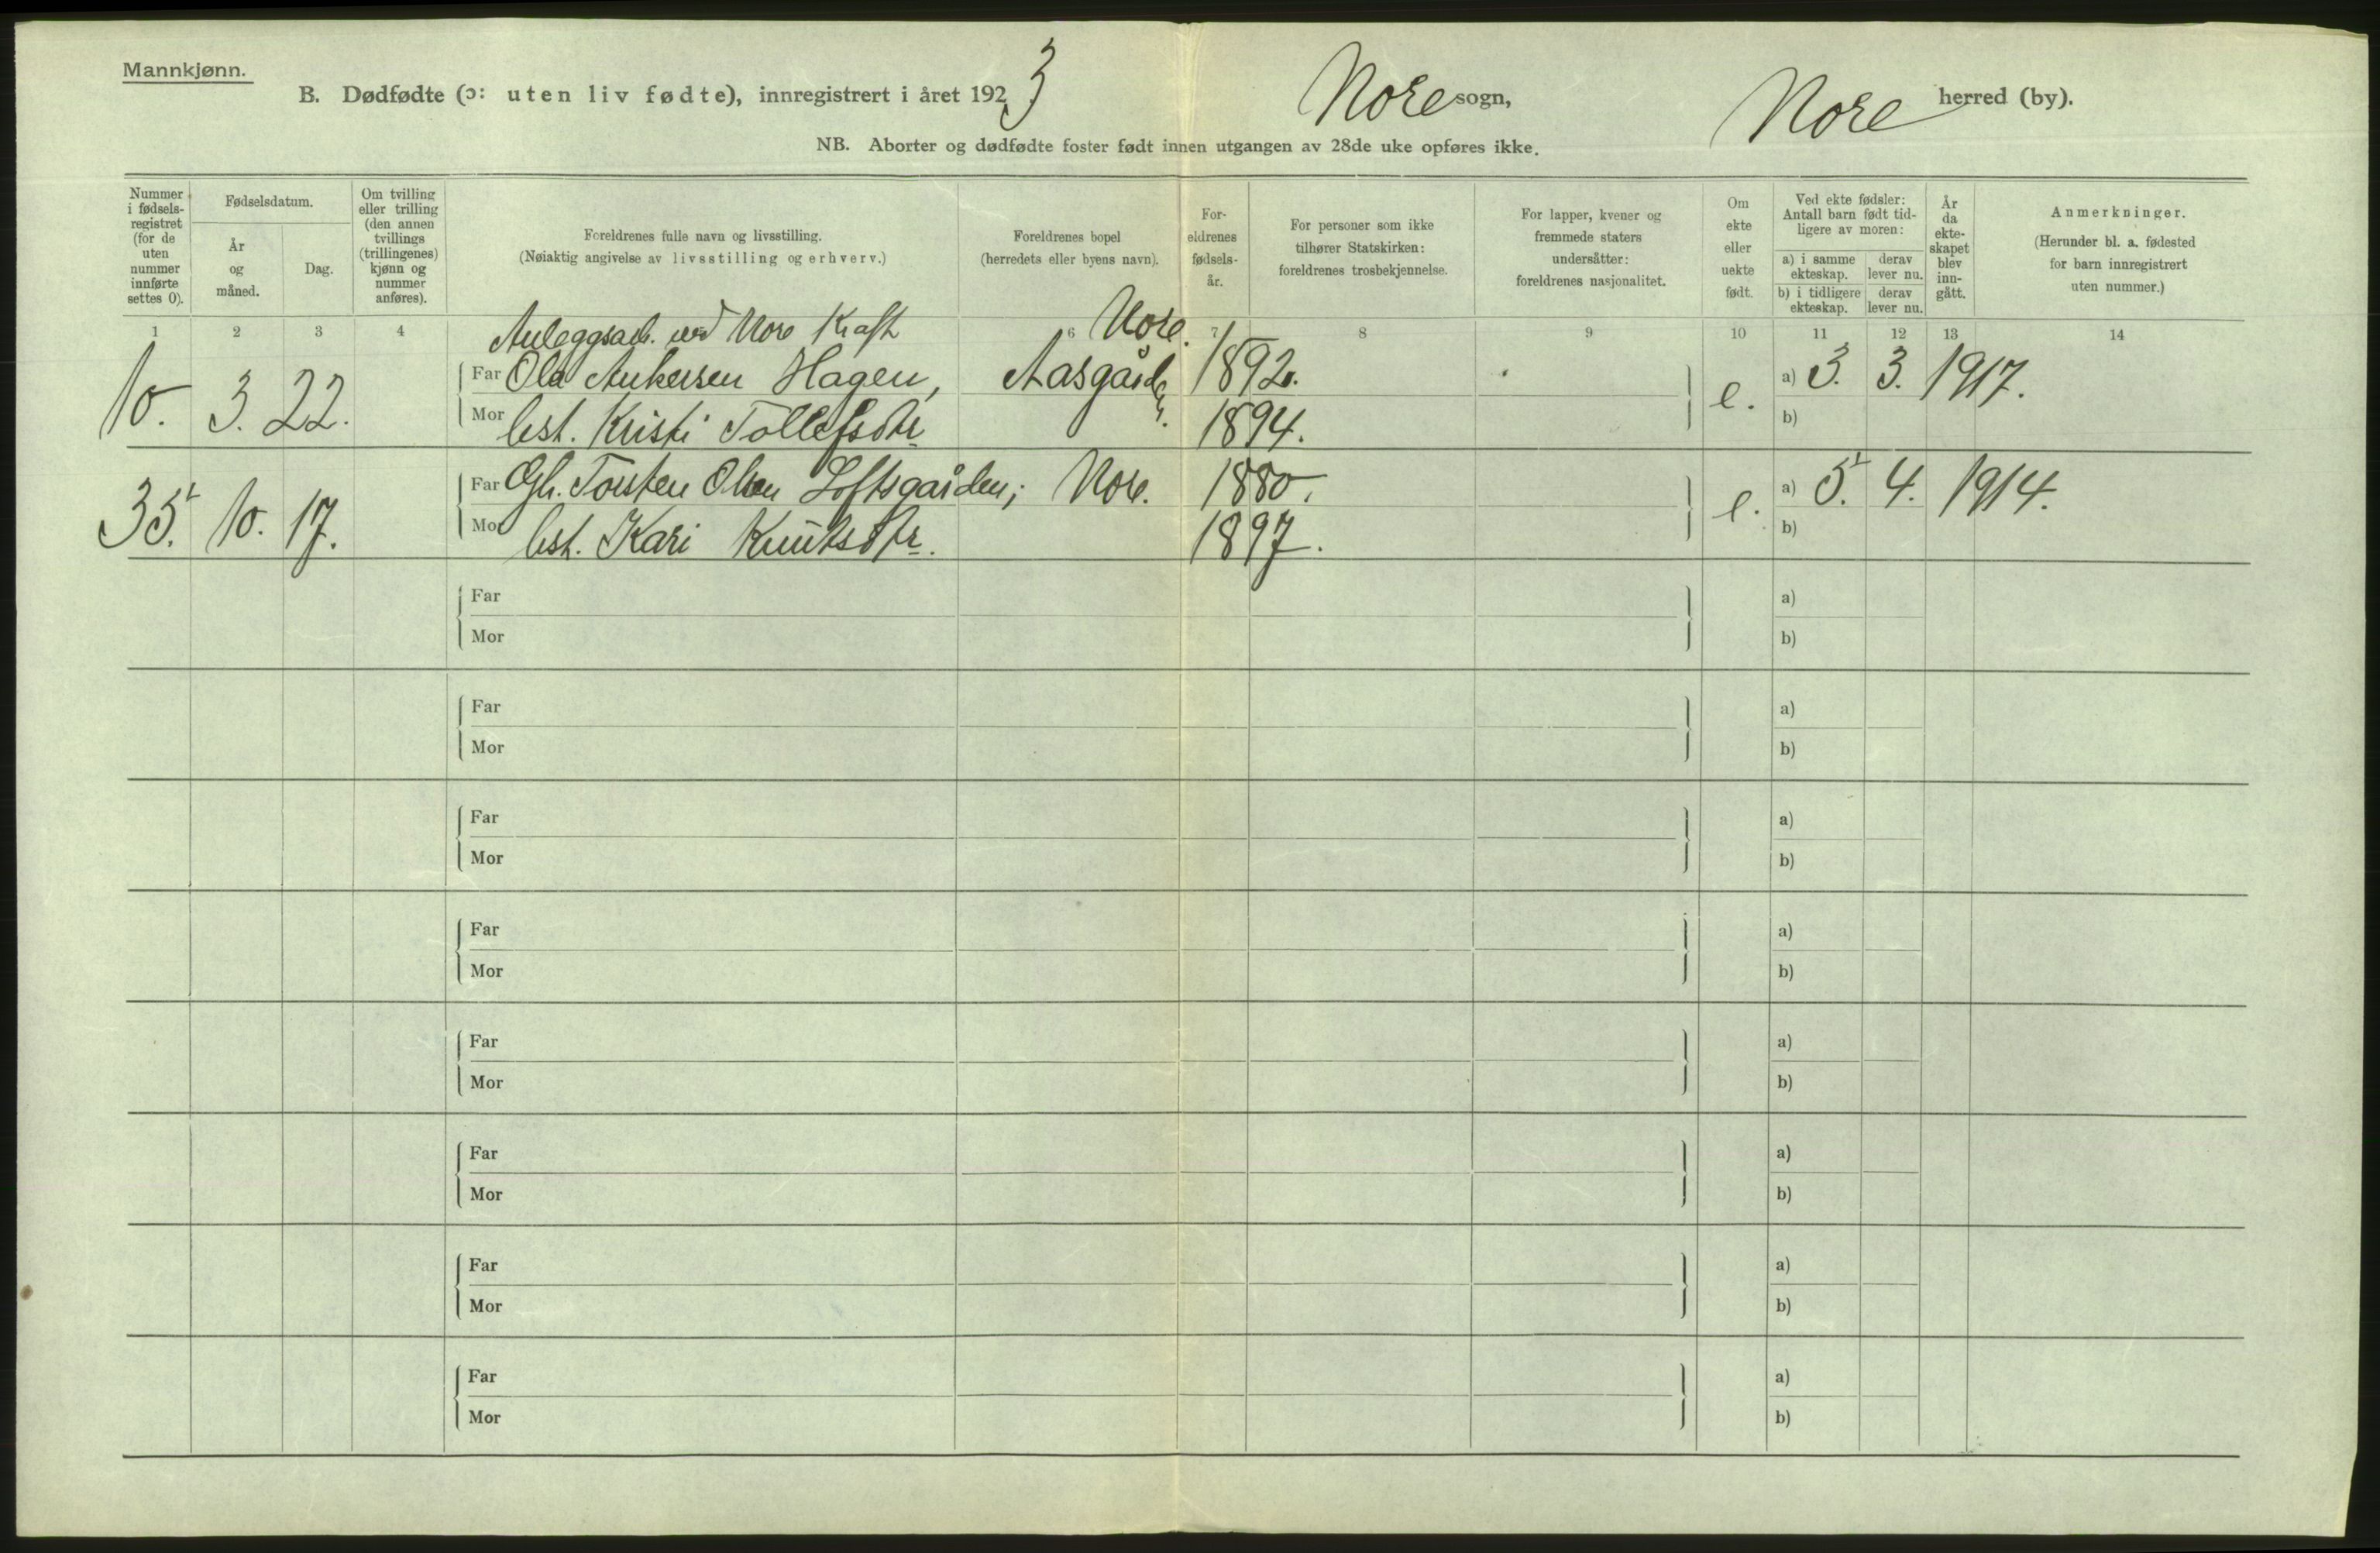 Mannkjønn.
B. Dødfødte (ɔ: uten liv fødte), innregistrert i året 1923 Nore sogn, Nore herred (by).
NB. Aborter og dødfødte foster født innen utgangen av 28de uke opføres ikke.
Nummer i fødsels-registret (for de uten nummer innførte settes 0).
Fødselsdatum.
År og måned.
Dag.
Om tvilling eller trilling (den annen tvillings (trillingenes) kjønn og nummer anføres).
Foreldrenes fulle navn og livsstilling.
(Nøiaktig angivelse av livsstilling og erhverv.)
Foreldrenes bopel
(herredets eller byens navn).
For-eldrenes fødsels-år.
For personer som ikke tilhører Statskirken: foreldrenes trosbekjennelse.
For lapper, kvener og fremmede staters undersåtter: foreldrenes nasjonalitet.
Om ekte eller uekte født.
Ved ekte fødsler: Antall barn født tid-ligere av moren:
a) i samme ekteskap. derav lever nu.
b) i tidligere ekteskap. derav lever nu.
År da ekte-skapet blev inn-gått.
Anmerkninger.
(Herunder bl. a. fødested for barn innregistrert uten nummer.)
1 2 3 4 6 7 8 9 10 11 12 13 14
Anleggsarb. ved Nore Kraft Nore.
10. 3. 22. Far Ola Ankersen Hagen, Aasgården. 1892. e. a) 3. 3. 1917.
Mor Hst. Kristi Tollefsdtr 1894. b)
35. 10. 17. Far Gbr. Torsten Olsen Loftsgarden; Nore. 1880. e. a) 5. 4. 1914.
Mor Hst. Kari Knutsdtr. 1897. b)
Far a)
Mor b)
Far a)
Mor b)
Far a)
Mor b)
Far a)
Mor b)
Far a)
Mor b)
Far a)
Mor b)
Far a)
Mor b)
Far a)
Mor b)